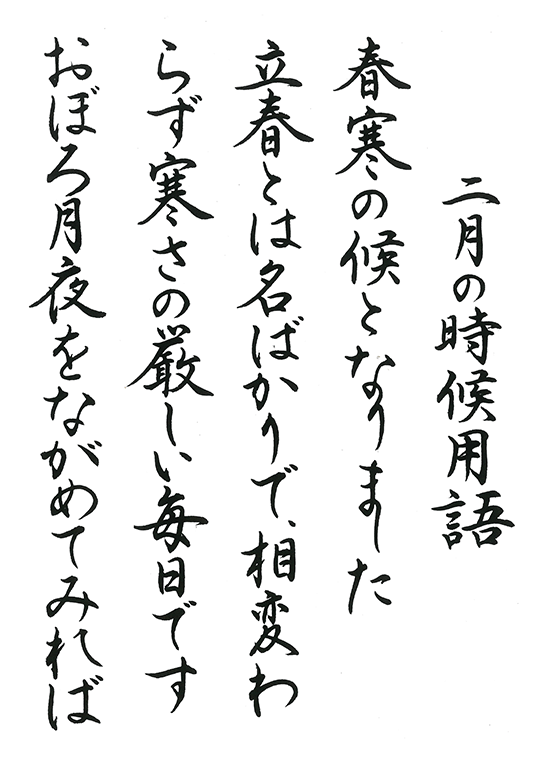 二月の時候用語
春寒の候となりました
立春とは名ばかりで、相変わ
らず寒さの厳しい毎日です
おぼろ月夜をながめてみれば